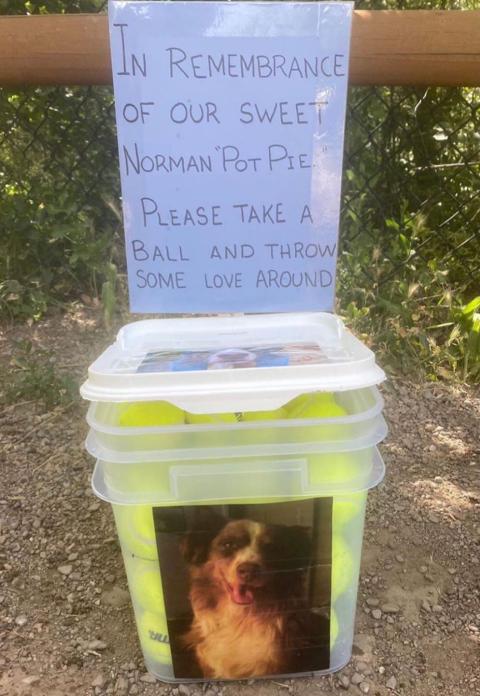 In Remembrance
of our sweet
Norman "Pot Pie."
Please take a
Ball and throw
some love around